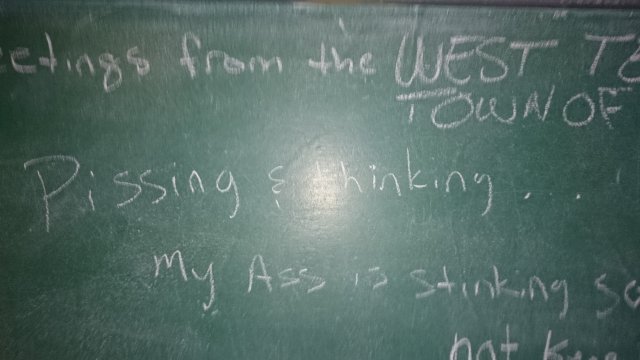 etings from the WEST TE
TOWN OF
Pissing & thinking...
My Ass is stinking so
not